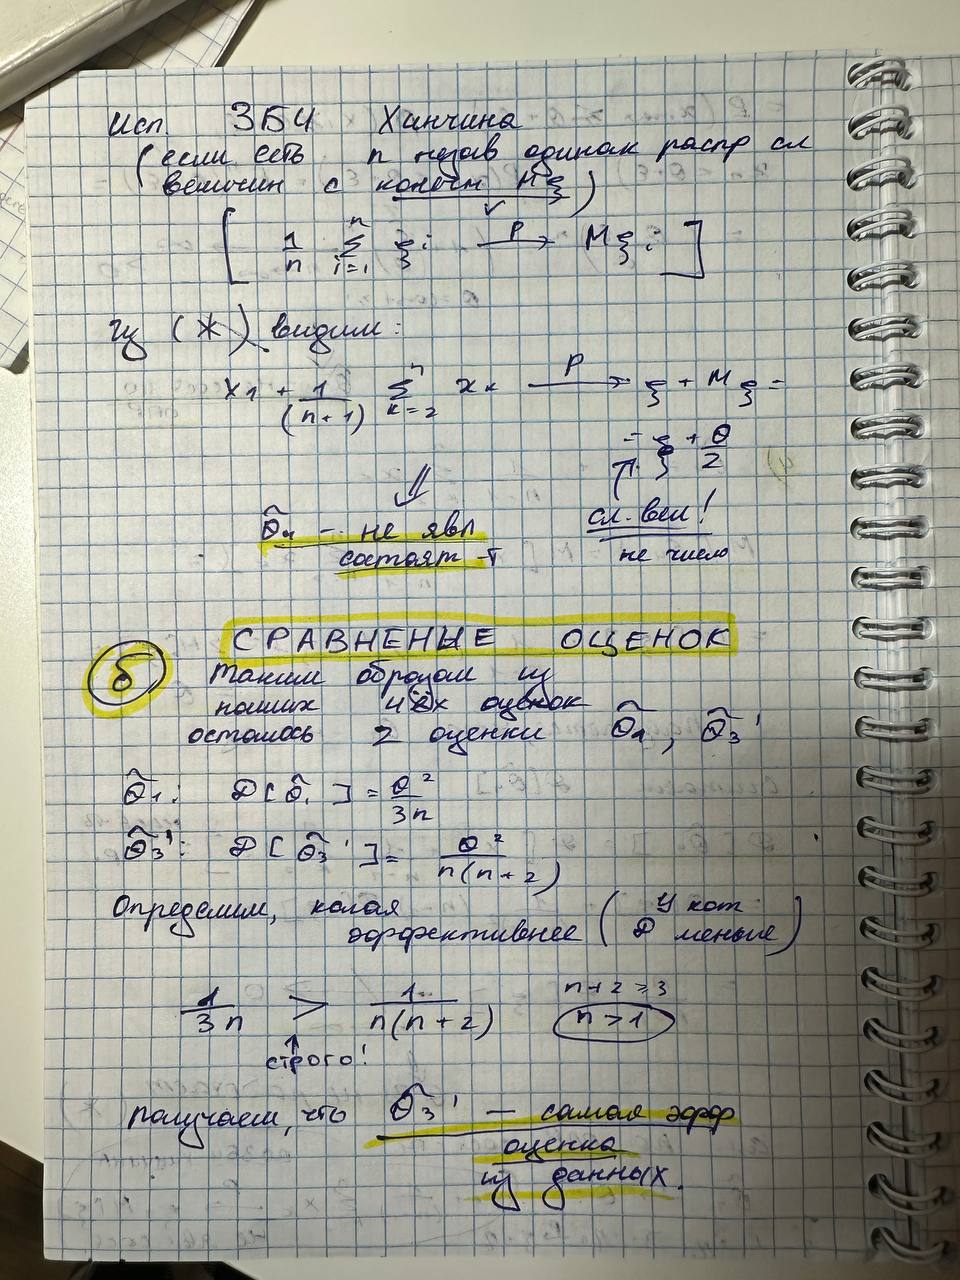 Исп. ЗБЧ Хинчина
(если есть n незав одинак распр сл
величин с конечн Mξ)
[ 1/n Σ_{i=1}^{n} ξi —P→ Mξi ]
Из (*) видим:
x1 + 1/(n+1) Σ_{k=2}^{n} xk —P→ ξ + Mξ =
= ξ + θ/2
⇓
↑
θ̂4 – не явл
состоят-т
сл. вел!
не число
б СРАВНЕНЫЕ ОЦЕНОК
Таким образом из
наших 4ёх оценок
осталось 2 оценки θ̂1, θ̂3'
θ̂1: D[θ̂1] = θ²/3n
θ̂3': D[θ̂3'] = θ²/n(n+2)
Определим, какая
эффективнее (у кот
D меньше)
1/3n > 1/n(n+2)
n+2 > 3
n > 1
↑
строго!
получаем, что θ̂3' – самая эфф
оценка
из данных.